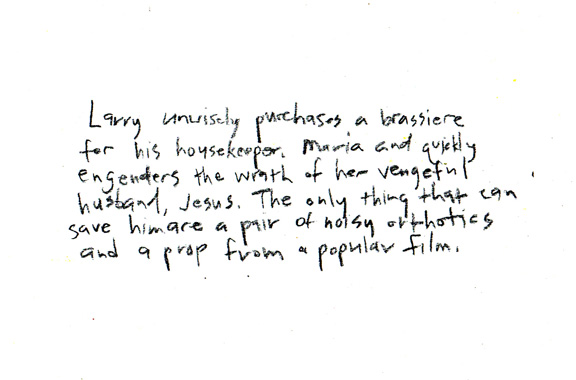 Larry unwisely purchases a brassiere
for his housekeeper, Maria and quickly
engenders the wrath of her vengeful
husband, Jesus. The only thing that can
save him are a pair of noisy orthotics
and a prop from a popular film.